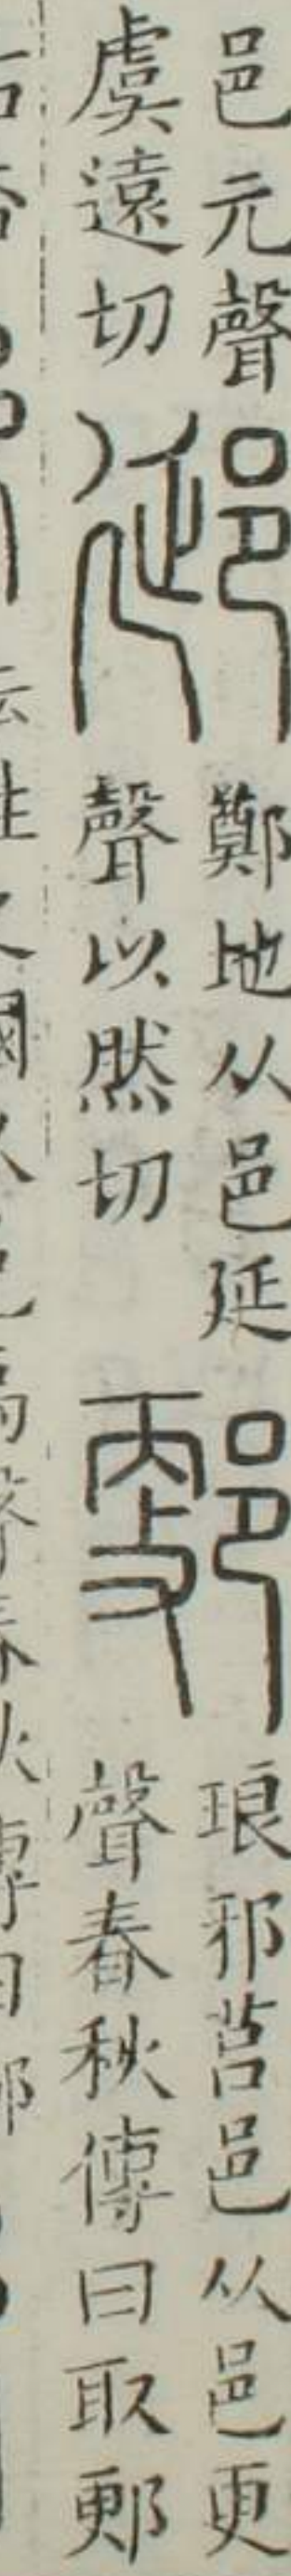 邑元聲
虞遠切
郔
鄭地从邑延
聲以然切
郠
琅邪莒邑从邑更
聲春秋傳曰取郠